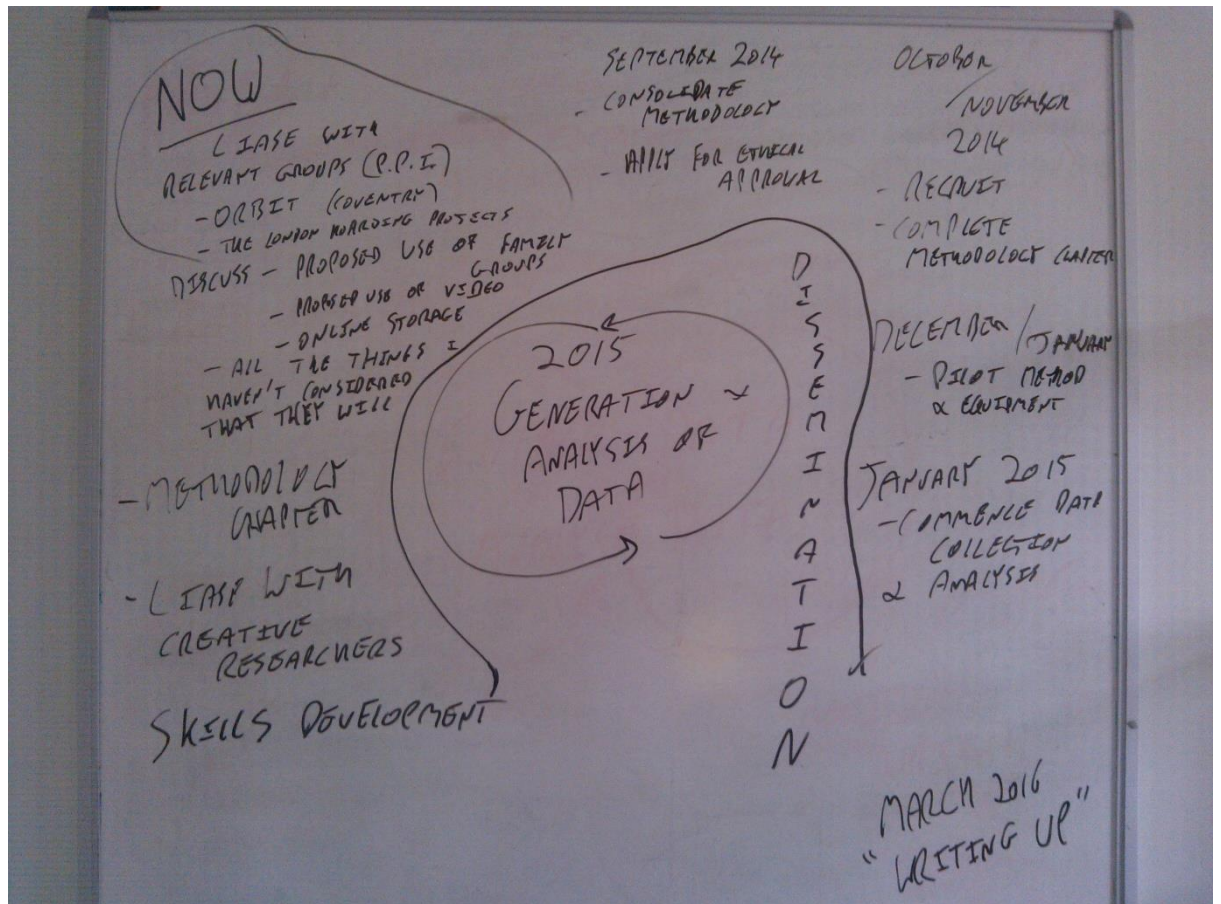 NOW
LIASE WITH
RELEVANT GROUPS (P.P.I.)
- ORBIT (COVENTRY)
- THE LONDON HOARDING PROJECTS
DISCUSS - PROPOSED USE OF FAMILY
GROUPS
- PROPOSED USE OF VIDEO
- ONLINE STORAGE
- ALL THE THINGS I
HAVEN'T CONSIDERED
THAT THEY WILL
- METHODOLOGY
CHAPTER
- LIASE WITH
CREATIVE
RESEARCHERS
SKILLS DEVELOPMENT
2015
GENERATION &
ANALYSIS OF
DATA
DISSEMINATION
SEPTEMBER 2014
- CONSOLIDATE
METHODOLOGY
- APPLY FOR ETHICAL
APPROVAL
OCTOBER
/NOVEMBER
2014
- RECRUIT
- COMPLETE
METHODOLOGY CHAPTER
DECEMBER/JANUARY
- PILOT METHOD
& EQUIPMENT
JANUARY 2015
- COMMENCE DATA
COLLECTION
& ANALYSIS
MARCH 2016
"WRITING UP"